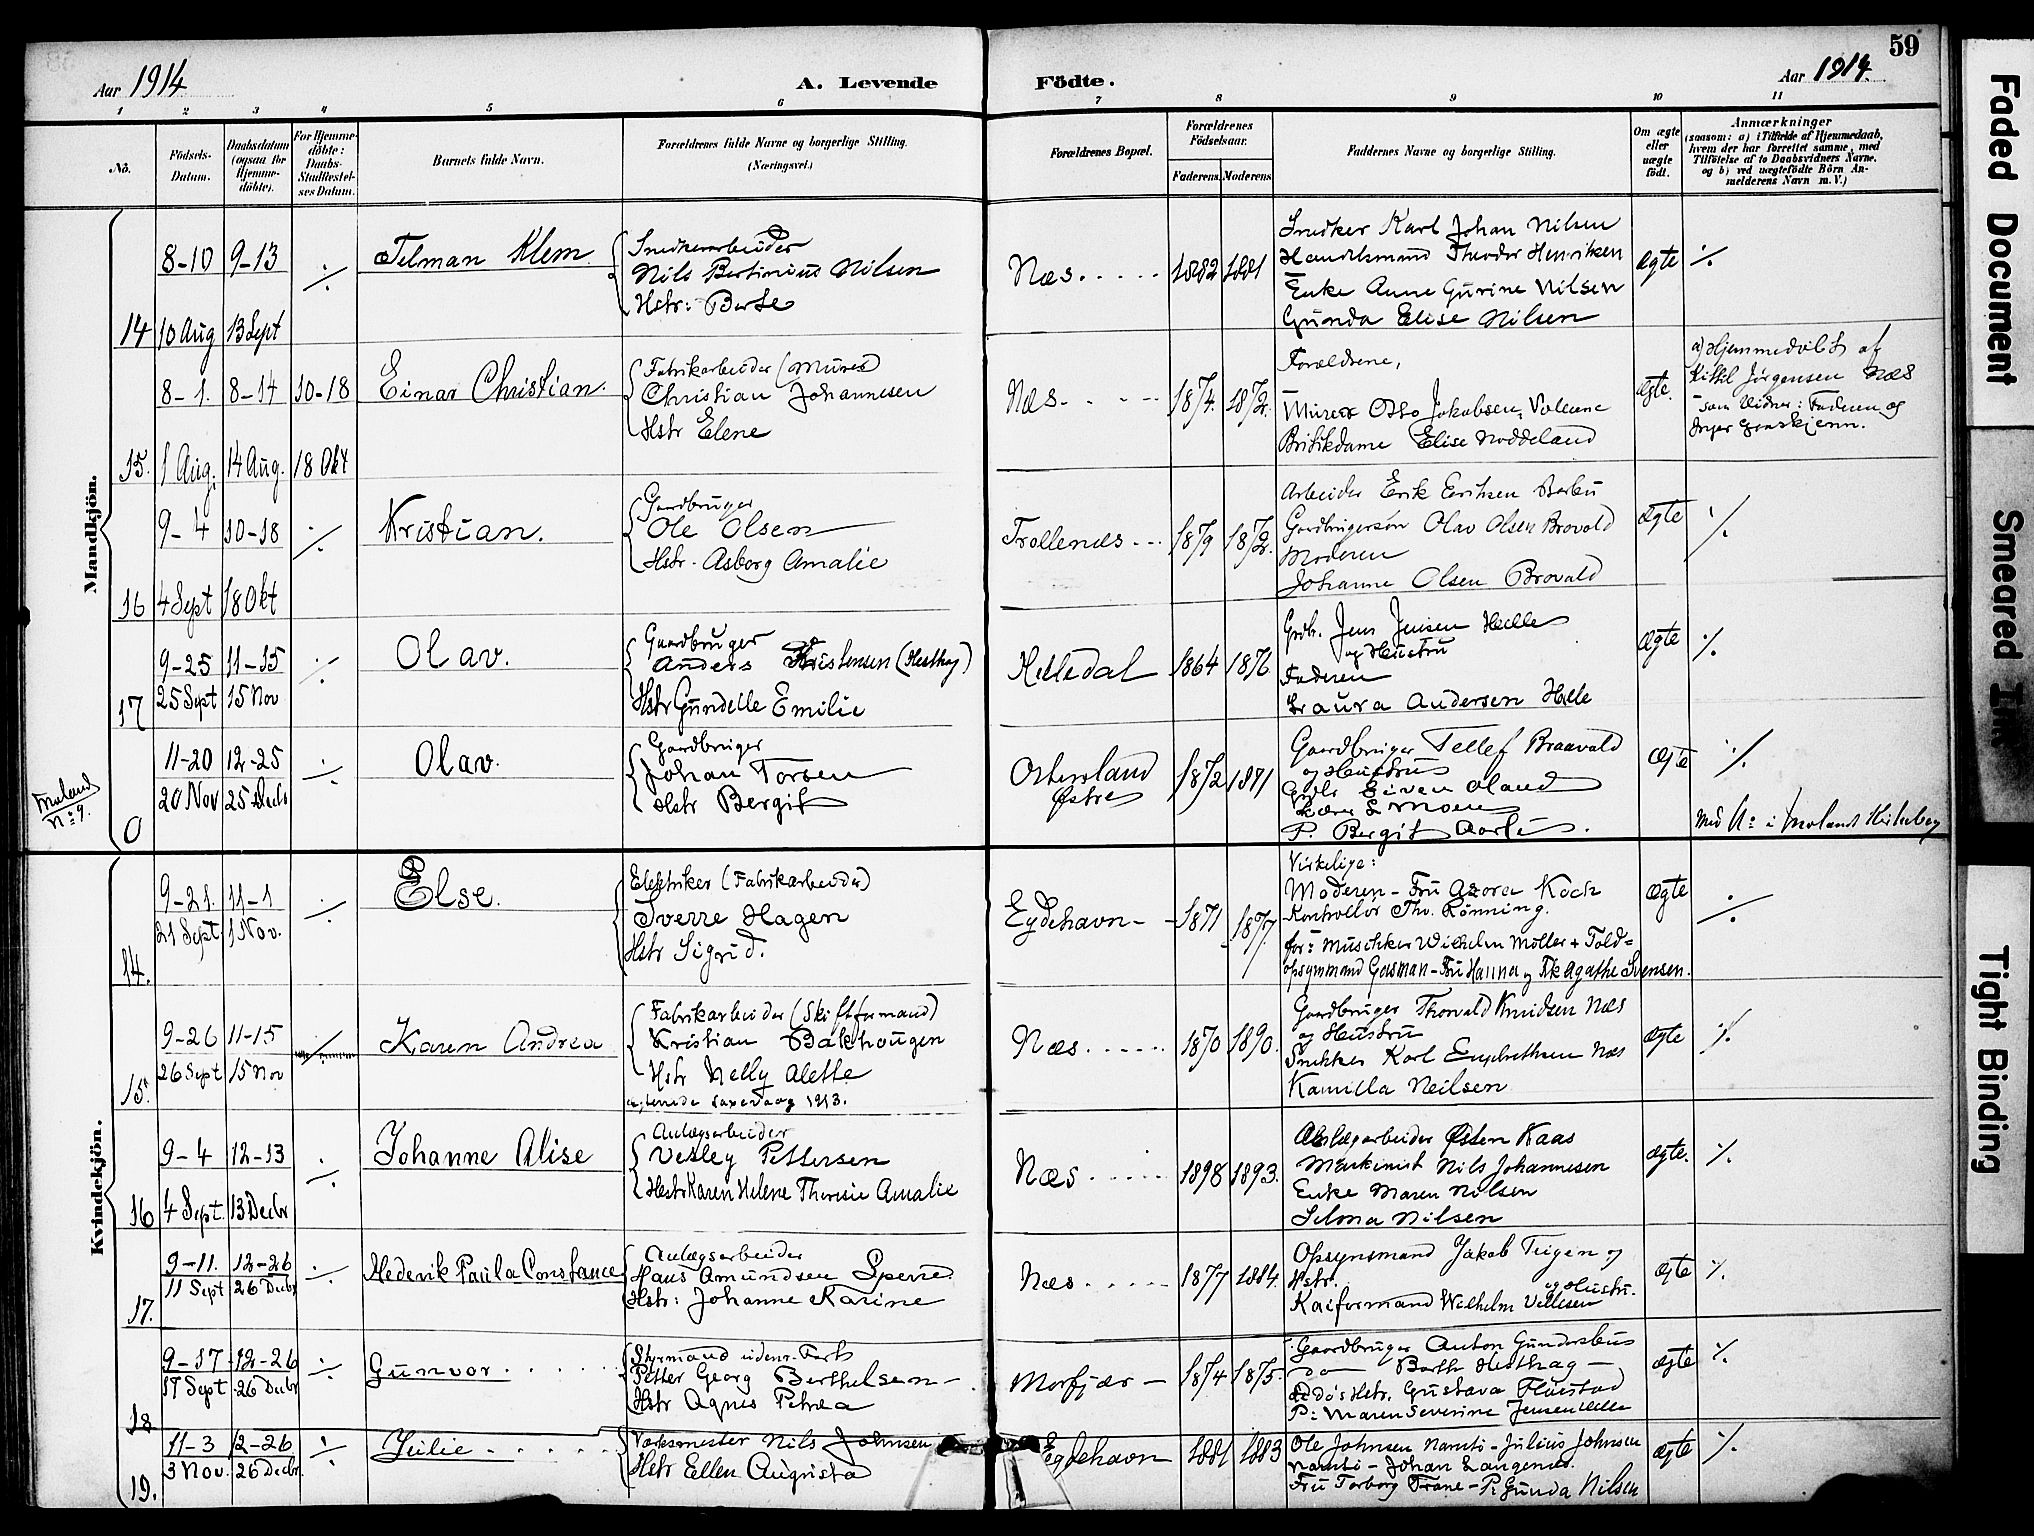 59
Aar 1914
A. Levende
Födte.
Aar 1914
1 2 3 4 5 6 7 8 9 10 11
No.
Födsels-
Datum.
Daabsdatum
(ogsaa for
Hjemme-
döbte).
For Hjemme-
döbte:
Daabs-
Stadfæstel-
ses Datum.
Barnets fulde Navn.
Forældrenes fulde Navne og borgerlige Stilling.
(Næringsvei.)
Forældrenes Bopæl.
Forældrenes
Födselsaar.
Faderens. Moderens.
Faddernes Navne og borgerlige Stilling.
Om ægte
eller
uægte
födt.
Anmærkninger
(saasom: a) i Tilfælde af Hjemmedaab,
hvem der har forrettet samme, med
Tilföielse af to Daabsvidners Navne.
og b) ved uægtefödte Börn An-
melderens Navn m. V.)
Mandkjön.
14
8-10 9-13
10 Aug 13 Sept
Telman Klem
Snedkerarbeider
Nils Bertinius Nilsen
Hstr: Berte
Næs
1882 1881
Snedker Karl Johan Nilsen
Handelsmand Theodor Henriksen
Enke Anne Gurine Nilsen
Gunda Elise Nilsen
Ægte
15.
8-1. 8-14 10-18
1 Aug. 14 Aug. 18 Okt
Einar Christian.
Fabrikarbeider (Murer)
Christian Johannesen
Hstr Elene
Næs
1874. 1872.
Forældrene,
Murer Otto Jakobsen,
Butikdame Elise Noddeland
Ægte.
a) Hjemmedøbt af
Kittil Jørgensen Næs
som Vidner: Faderen og
16
9-4 10-18
4 Sept 18 Okt
Kristian.
Gardbruger
Ole Olsen
Hstr. Asborg Amalie
Trollenæs
1879 1872.
Arbeider Erik Eriksen Barbu
Gardbrugersøn Olav Olsen Brovold
Moderen
Johanne Olsen Brovald
Ægte
17
9-25 11-15
25 Sept 15 Nov
Olav.
Gaardbruger
Anders Kristensen (Hesthag)
Hstr Gundelle Emilie
Helledal
1864 1876
Grdb. Jens Jensen Helle
og Hustru
Faderen
Laura Andersen Helle
Ægte
Moland
No 9.
0
11-20 12-25
20 Nov 25 Decb
Olav.
Gaardbruger
Johan Torsen
Hstr Bergit
Østre
1872 1871
Gaardbruger Tellef Braavald
og Hustru
Grdb Eivin Oland
P. Bergit
Ægte
Med No i Moland
Kvindekjön.
14.
9-21. 11-1
21 Sept 1 Nov.
Else.
Elektriker (Fabrikarbeider)
Sverre Hagen
Hstr Sigrid.
Eydehavn
1871 1877.
Virkelige:
Moderen - Fru Azora Koch
Kontrollør Thv. Rønning.
for: Musikker Wilhelm Møller + Told=
opsynmand Gasman - Fru Hanna og Frk Agathe Svensen.
Ægte
15.
9-26 11-15
26 Sept 15 Nov
Karen Andrea
Fabrikarbeider (Skiftformand)
Kristian Bakhougen
Hstr Nelly Alette
1913.
Næs
1870 1890.
Gaardbruger Thorvald Knudsen Næs
og Hustru
Snekker Karl Engebrethsen Næs
Kamilla Neilsen
Ægte
16
9-4 12-13
4 Sept. 13 Decbr
Johanne Alise
Anlægsarbeider
Vetley Pettersen
Hstr Karen Helene Theresie Amalie
Næs
1898 1893.
Anlægarbeider Østen Kaas
Maskinist Nils Johannesen
Enke Maren Nilsen
Selma Nilsen
Ægte.
17.
9-11. 12-26
11 Sept 26 Decbr
Hedevik Paula Constance
Anlægsarbeider
Hans Amundsen Sperre
Hstr: Johanne Karine
Næs
1877 1884.
Opsynsmand Jakob Teigen og
Hstr.
og Hustru.
Kaiformand Wilhelm Villesen
Ægte
18
9-17 12-26
17 Sept. 26 Decbr
Gunvor
Styrmand udenr. Fart
Petter Georg Berthelsen
Hstr Agnes Petrea
Morfjær
1874 1875.
Gaardbruger Anton Gundersbus
do Berthe Hesthag
dødøs Hstr. Gustava Flaustad
P: Maren Severine Jensen Helle
Ægte
19.
11-3 12-26
3 Nov. 26 Decbr
Julie
Værksmester Nils Johnsen
Hstr Ellen Augusta
Eydehavn
1881 1883
Ole Johnsen Namti - Julius Johnsen
Namti - Johan Langenes.
Fru Torborg Trane - P: Gunda Nilsen
Ægte
Faded Document
Smeared Ink
Tight Binding